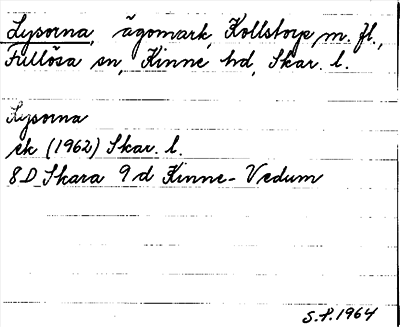 Lysorna, ägomark, Kollstorp m. fl.,
Fullösa sn, Kinne hd, Skar. l.
Lysorna
ek (1962) Skar. l.
8D Skara 9d Kinne-Vedum
S.P. 1964